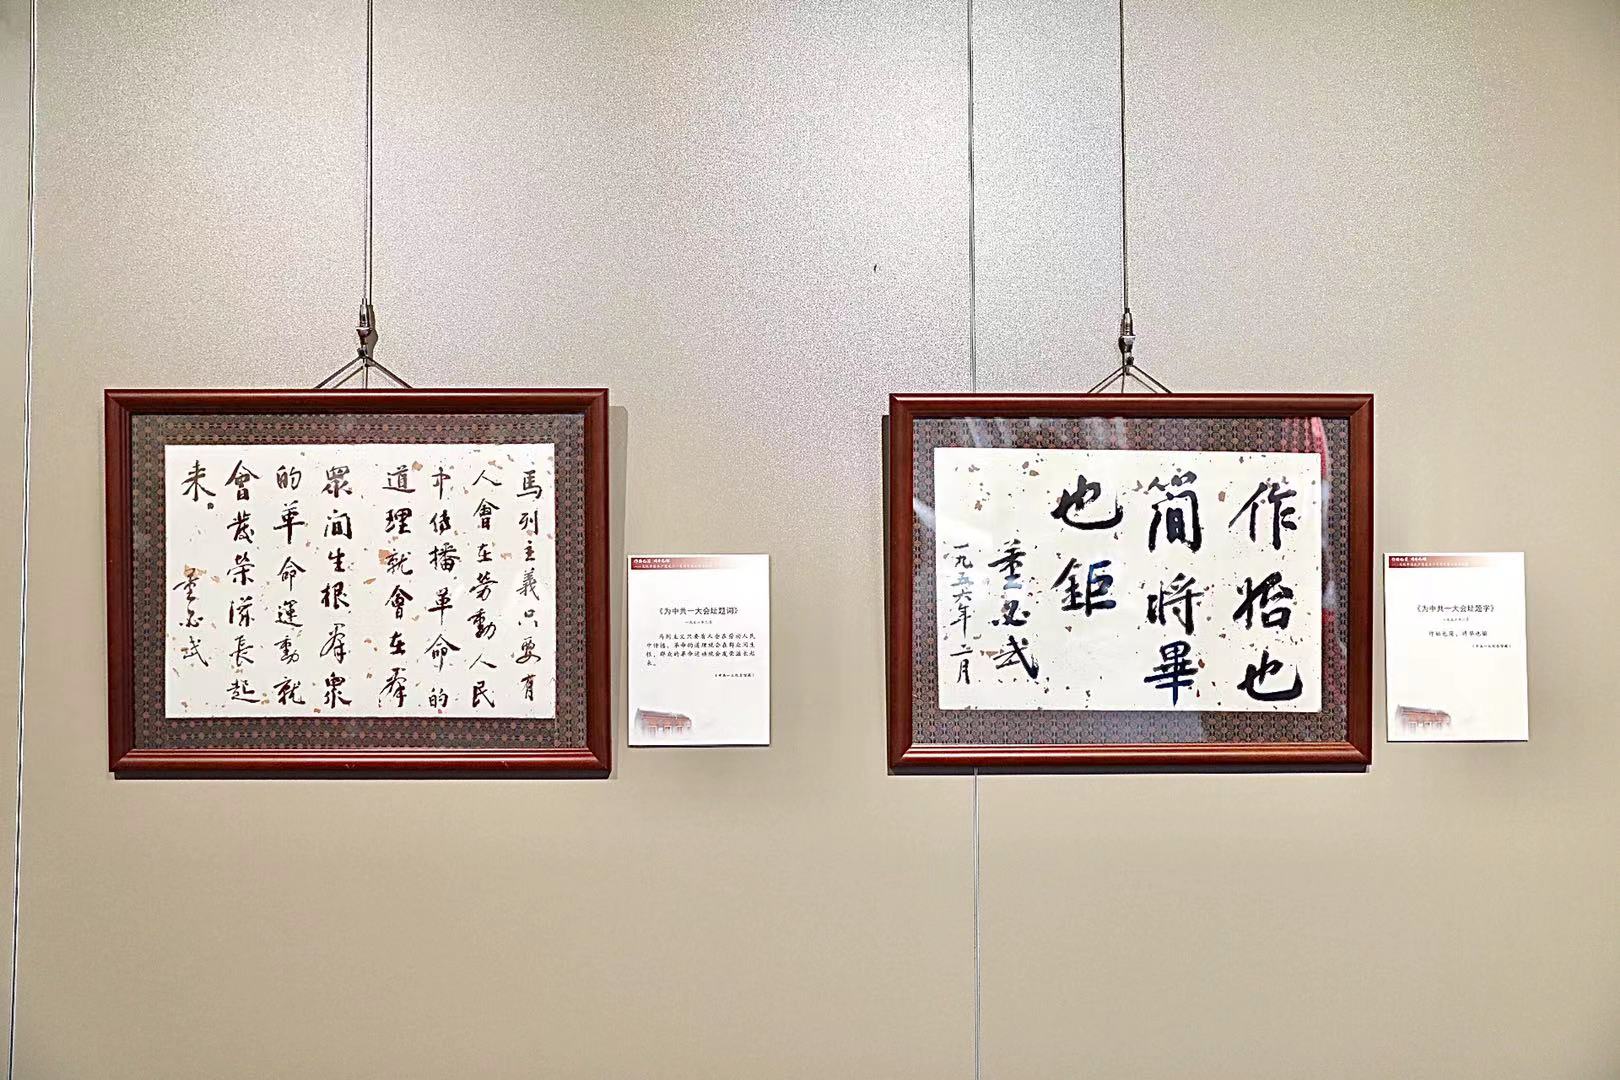 馬列主義只要有
人會在勞動人民
中傳播革命的
道理就會在羣
眾间生根羣眾
的革命運動就
會發榮滋長起
来。
董必武
《为中共一大会址题词》
马列主义只要有人会在劳动人民
中传播，革命的道理就会在群众间生
根，群众的革命运动就会发荣滋长起
来。
（中共一大纪念馆藏）
作始也
簡將畢
也鉅
董必武
一九五六年二月
《为中共一大会址题字》
一九五六年二月
作始也简，将毕也鉅
（中共一大纪念馆藏）